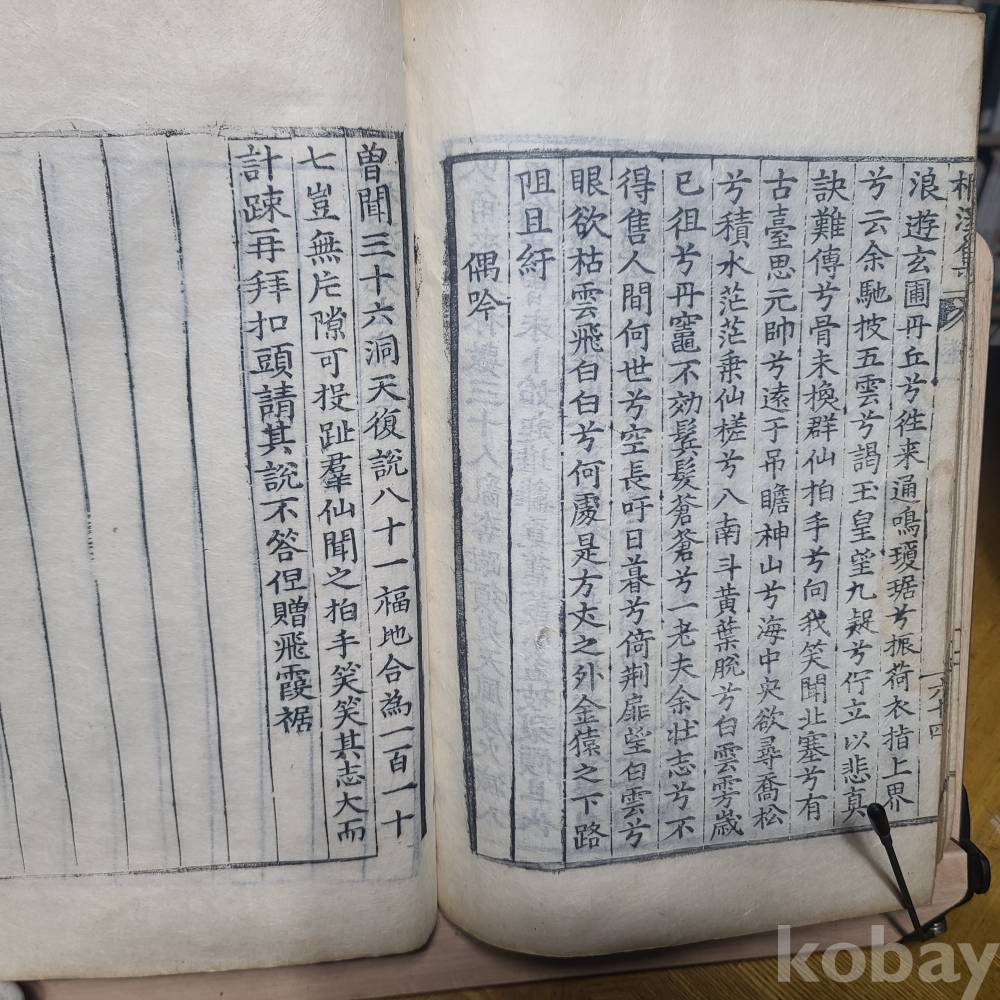 浪遊玄圃丹丘兮徃来通鳴瓊琚兮振荷衣指上界
兮云余馳披五雲兮謁玉皇望九疑兮佇立以悲真
訣難傳兮骨未換群仙拍手兮向我笑聞北塞兮有
古臺思元帥兮遠于吊瞻神山兮海中央欲尋喬松
兮積水茫茫乗仙槎兮八南斗黃葉脫兮白雲雲歳
已徂兮丹竈不効鬂髮蒼蒼兮一老夫余壮志兮不
得售人間何世兮空長吁日暮兮倚荆扉望白雲兮
眼欲枯雲飛白白兮何處是方丈之外金猿之下路
阻且紆
偶吟
曽聞三十六洞天復說八十一福地合為一百一十
七豈無片隙可投趾羣仙聞之拍手笑笑其志大而
計踈再拜扣頭請其說不答但贈飛霞裾
六十四
kobay